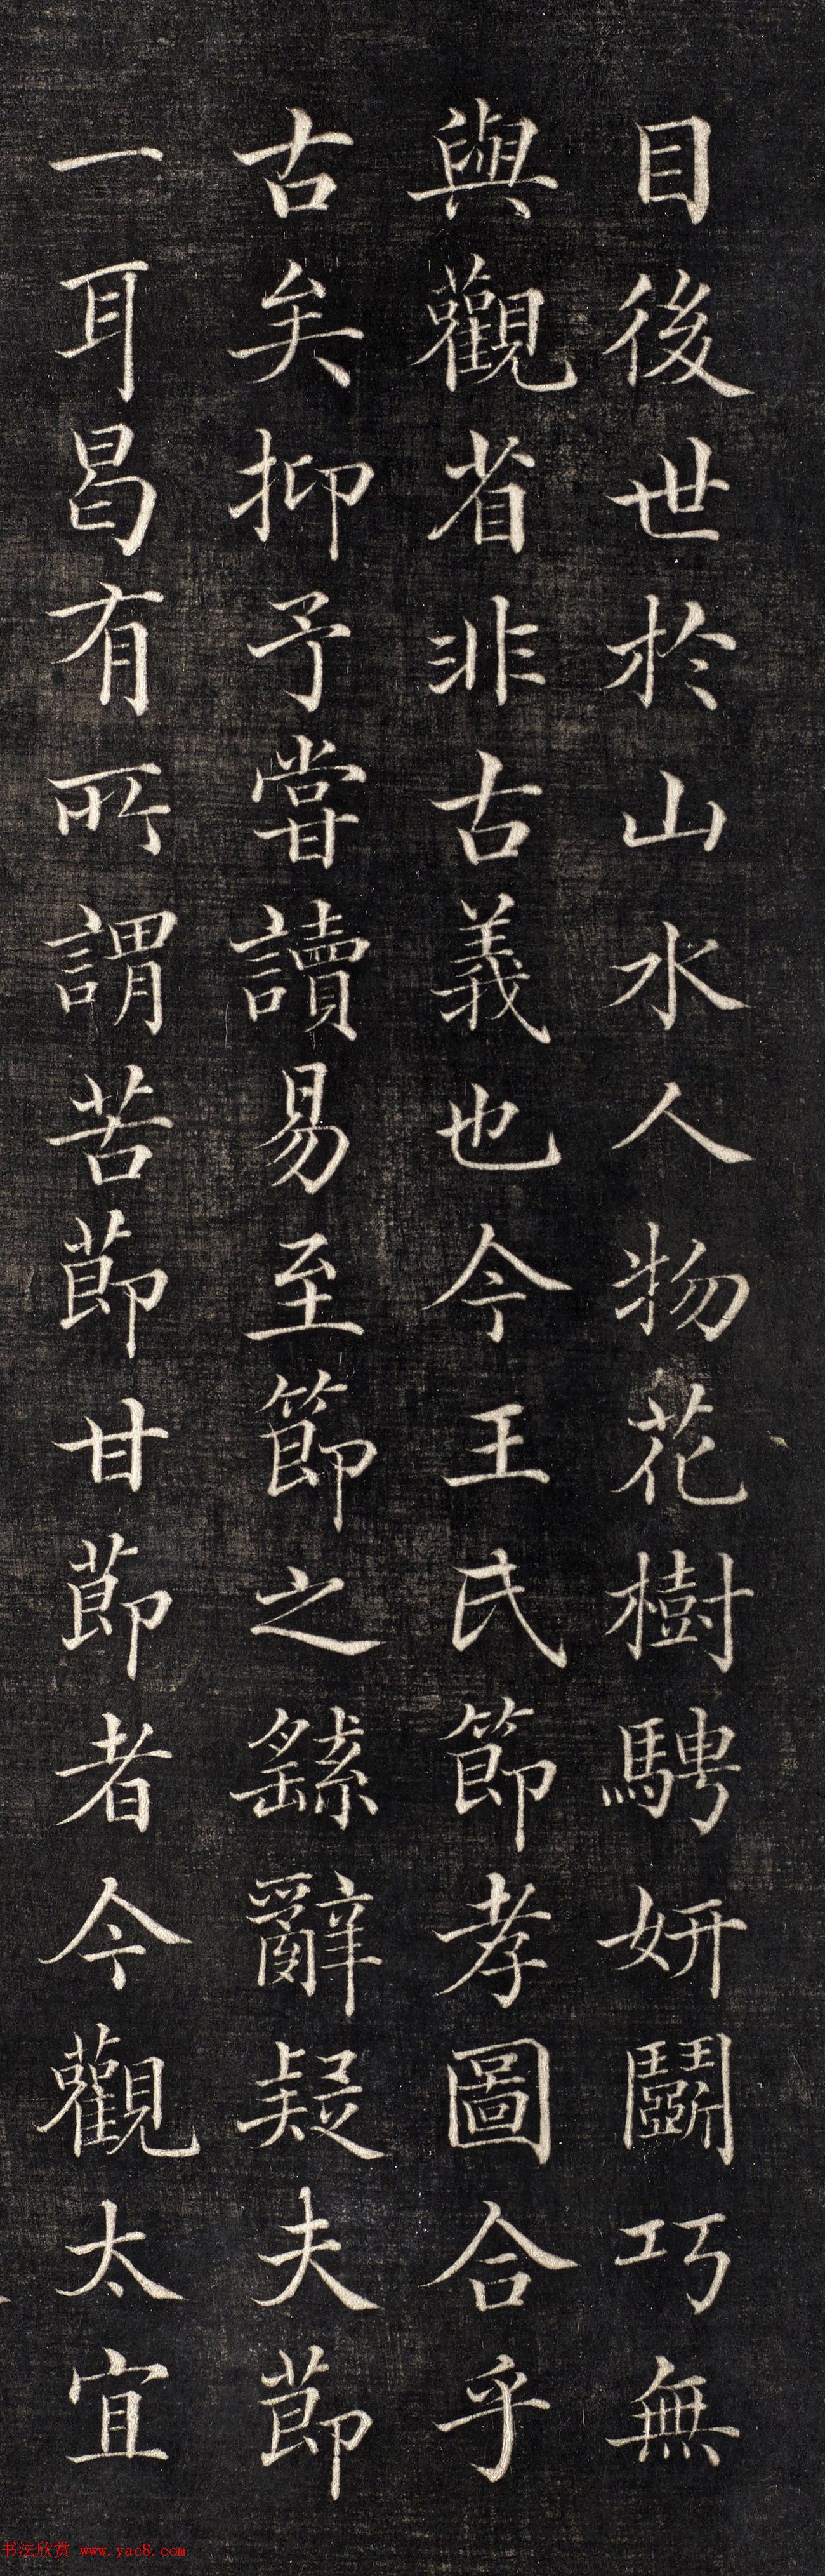 目後世於山水人物花樹騁妍鬭巧無
與觀省非古義也今王氏節孝圖合乎
古矣抑予嘗讀易至節之繇辭疑夫莭
一耳曷有所謂苦莭甘莭者今觀太宜
书法欣赏 www.yac8.com